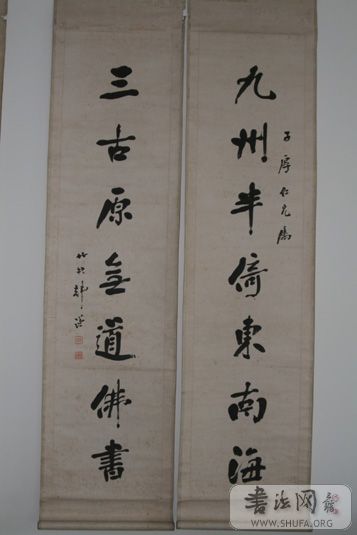 九州半倚東南海
子厚仁兄屬
三古原無道佛書
書法网
WWW.SHUFA.ORG